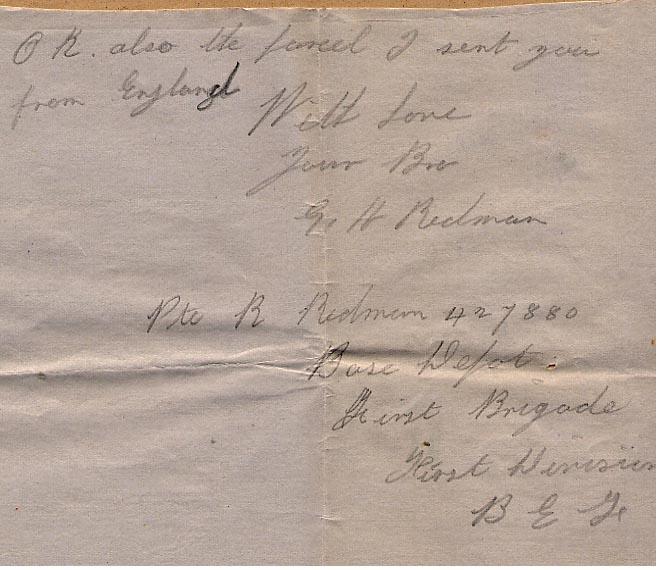 O K. also the parcel I sent you
from England
With Love
Your Bro
G. H Redman
Pte R Redman 427880
Base Depot.
First Brigade
First Division
B E F